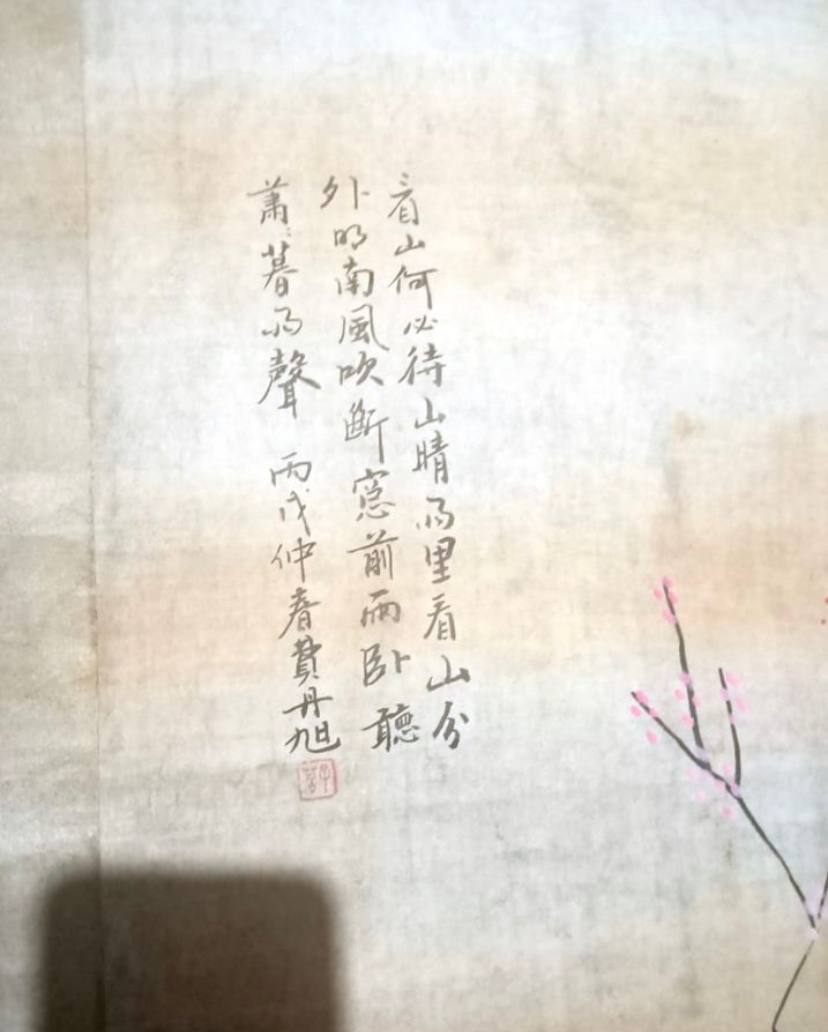 看山何必待山晴雨里看山分
外明南風吹斷窓前雨卧聽
蕭〻暮雨聲 丙戌仲春費丹旭